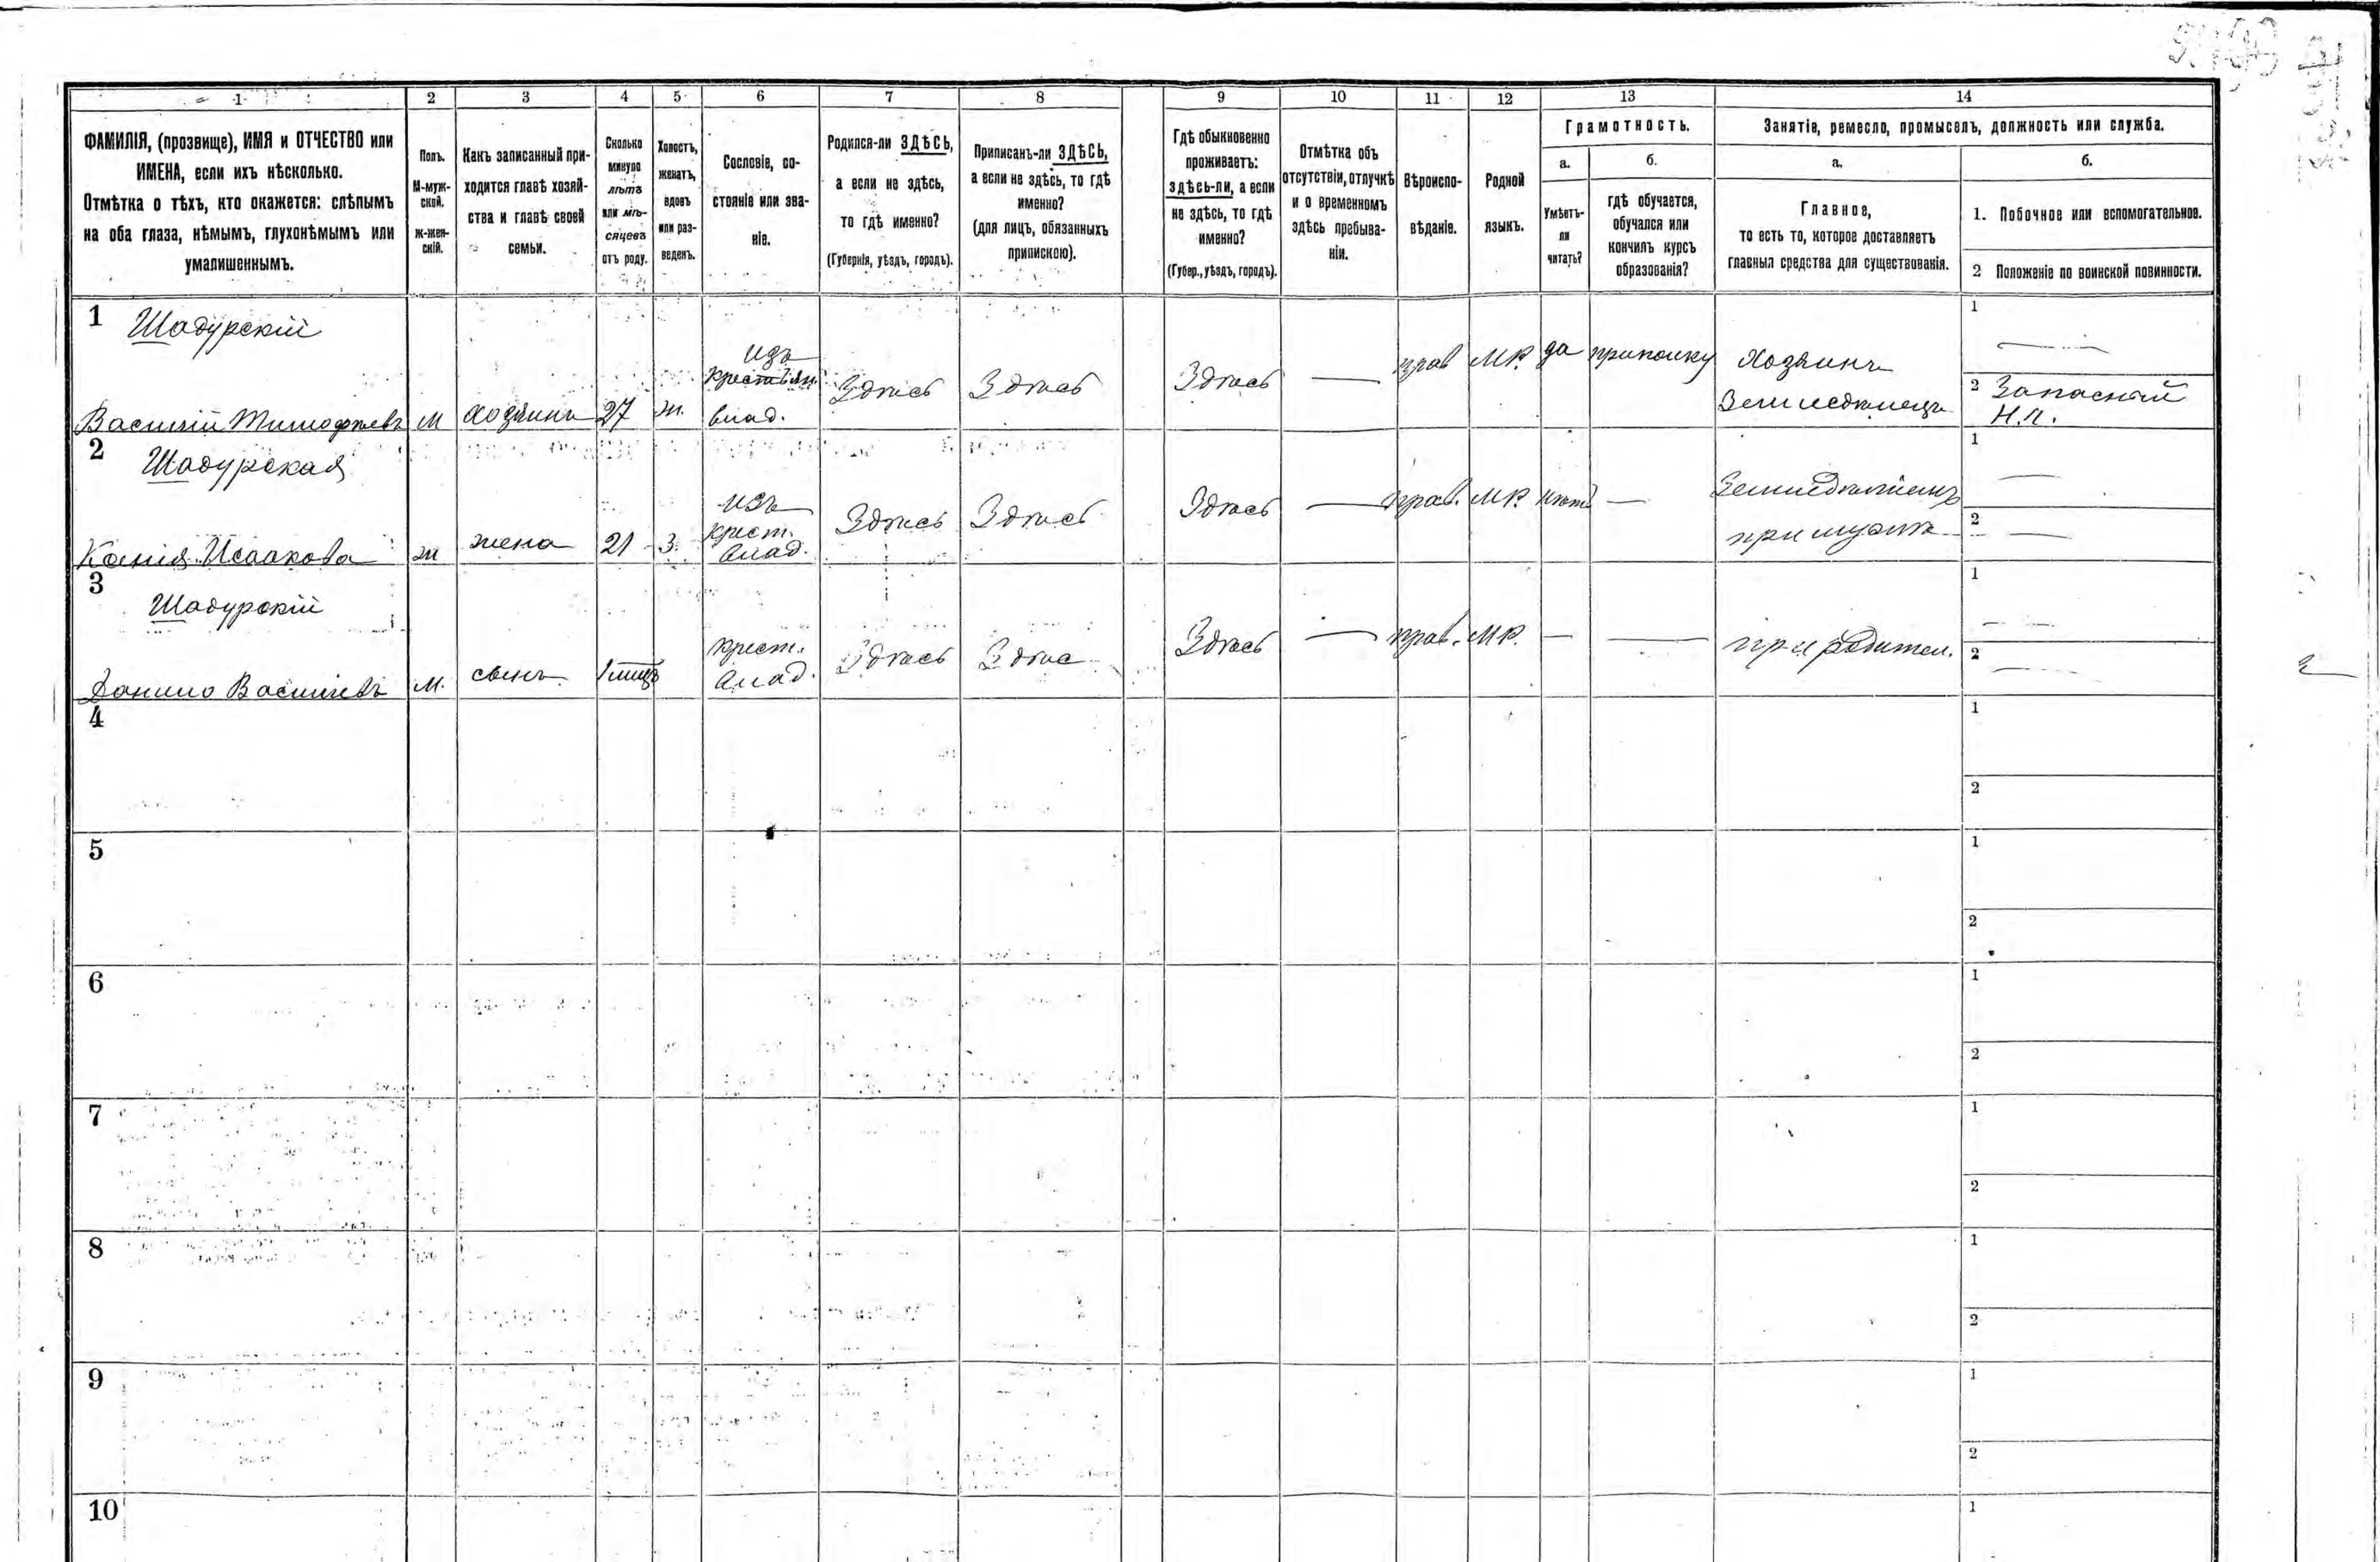 1 2 3 4 5 6 7 8 9 10 11 12 13 14
ФАМИЛІЯ, (прозвище), ИМЯ и ОТЧЕСТВО или
ИМЕНА, если ихъ нѣсколько.
Отмѣтка о тѣхъ, кто окажется: слѣпымъ
на оба глаза, нѣмымъ, глухонѣмымъ или
умалишеннымъ.
Полъ.
М-муж-
ской.
Ж-жен-
скій.
Какъ записанный при-
ходится главѣ хозяй-
ства и главѣ своей
семьи.
Сколько
минуло
лѣтъ
или мѣ-
сяцевъ
отъ роду.
Холостъ,
женатъ,
вдовъ
или раз-
веденъ.
Сословіе, со-
стояніе или зва-
ніе.
Родился-ли ЗДѢСЬ,
а если не здѣсь,
то гдѣ именно?
(Губернія, уѣздъ, городъ).
Приписанъ-ли ЗДѢСЬ,
а если не здѣсь, то гдѣ
именно?
(для лицъ, обязанныхъ
припискою).
Гдѣ обыкновенно
проживаетъ:
здѣсь-ли, а если
не здѣсь, то гдѣ
именно?
(Губер., уѣздъ, городъ).
Отмѣтка объ
отсутствіи, отлучкѣ
и о временномъ
здѣсь пребыва-
ніи.
Вѣроиспо-
вѣданіе.
Родной
языкъ.
Грамотность.
а.
Умѣетъ-
ли
читать?
б.
гдѣ обучается,
обучался или
кончилъ курсъ
образованія?
Занятіе, ремесло, промыселъ, должность или служба.
а.
Главное,
то есть то, которое доставляетъ
главныя средства для существованія.
б.
1. Побочное или вспомогательное.
2 Положеніе по воинской повинности.
1 Шадурскій
Василій Тимофѣевъ
М
хозяинъ
27
ж.
изъ
крестьян.
влад.
Здѣсь
Здѣсь
Здѣсь
—
прав
МР.
да
Хозяинъ
Земледѣлецъ
1 —
2 Запасный
Н.Л.
2 Шадурская
Ксенія Исаакова
ж
жена
21
З.
изъ
крест.
влад.
Здѣсь
Здѣсь
Здѣсь
—
прав.
МР.
нѣтъ
—
при мужѣ
1 —
2 —
3 Шадурскій
Данило Васильевъ
М.
сынъ
1 мѣцъ
крест.
влад.
Здѣсь
Здѣс
Здѣсь
—
прав.
МР.
—
—
при родител.
1 —
2 —
4
1
2
5
1
2
6
1
2
7
1
2
8
1
2
9
1
2
10
1